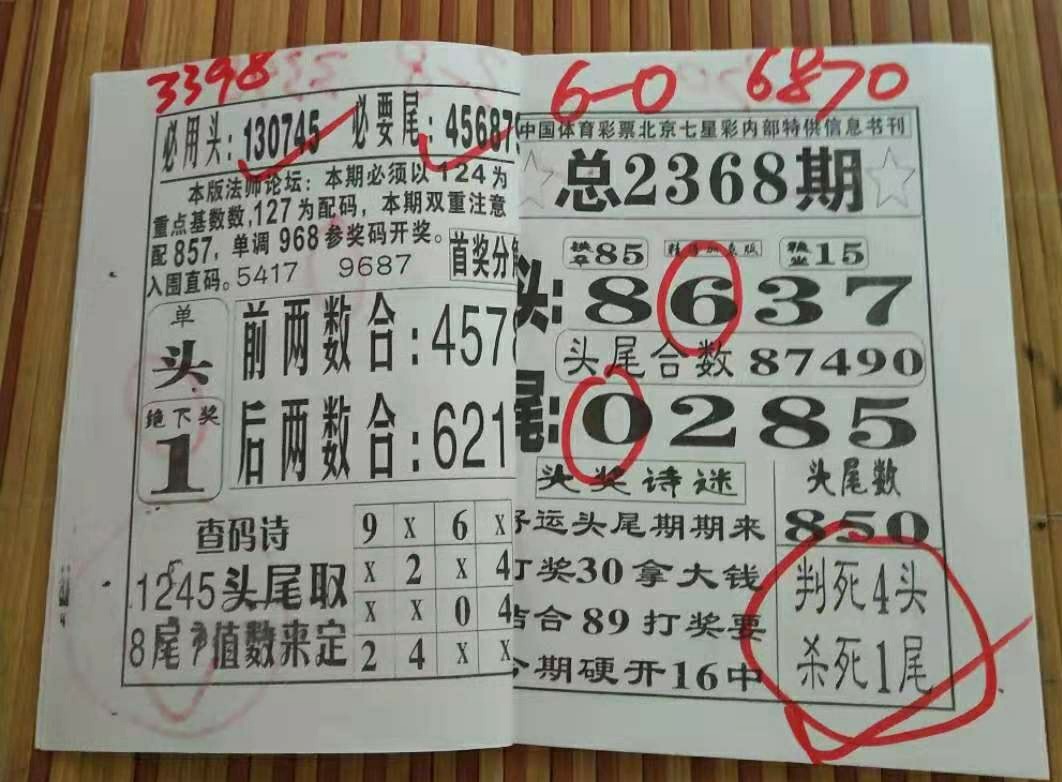 3398
必用头:130745 必要尾:45687
本版法师论坛:本期必须以124为
重点基数数,127为配码,本期双重注意
配857,单调968参奖码开奖。
入围直码.5417 9687
首奖分
单
头
绝下奖
1
前两数合:457
后两数合:621
查码诗
1245头尾取
8尾 值数来定
9 x 6 x
x 2 x 4
x x 0 4
2 4 x x
6-0 6870
中国体育彩票北京七星彩内部特供信息书刊
总2368期
85
15
头:8637
头尾合数 87490
尾:0285
头奖诗迷
运头尾期期来
奖30拿大钱
合89打奖要
期硬开16中
头尾数
850
判死4头
杀死1尾